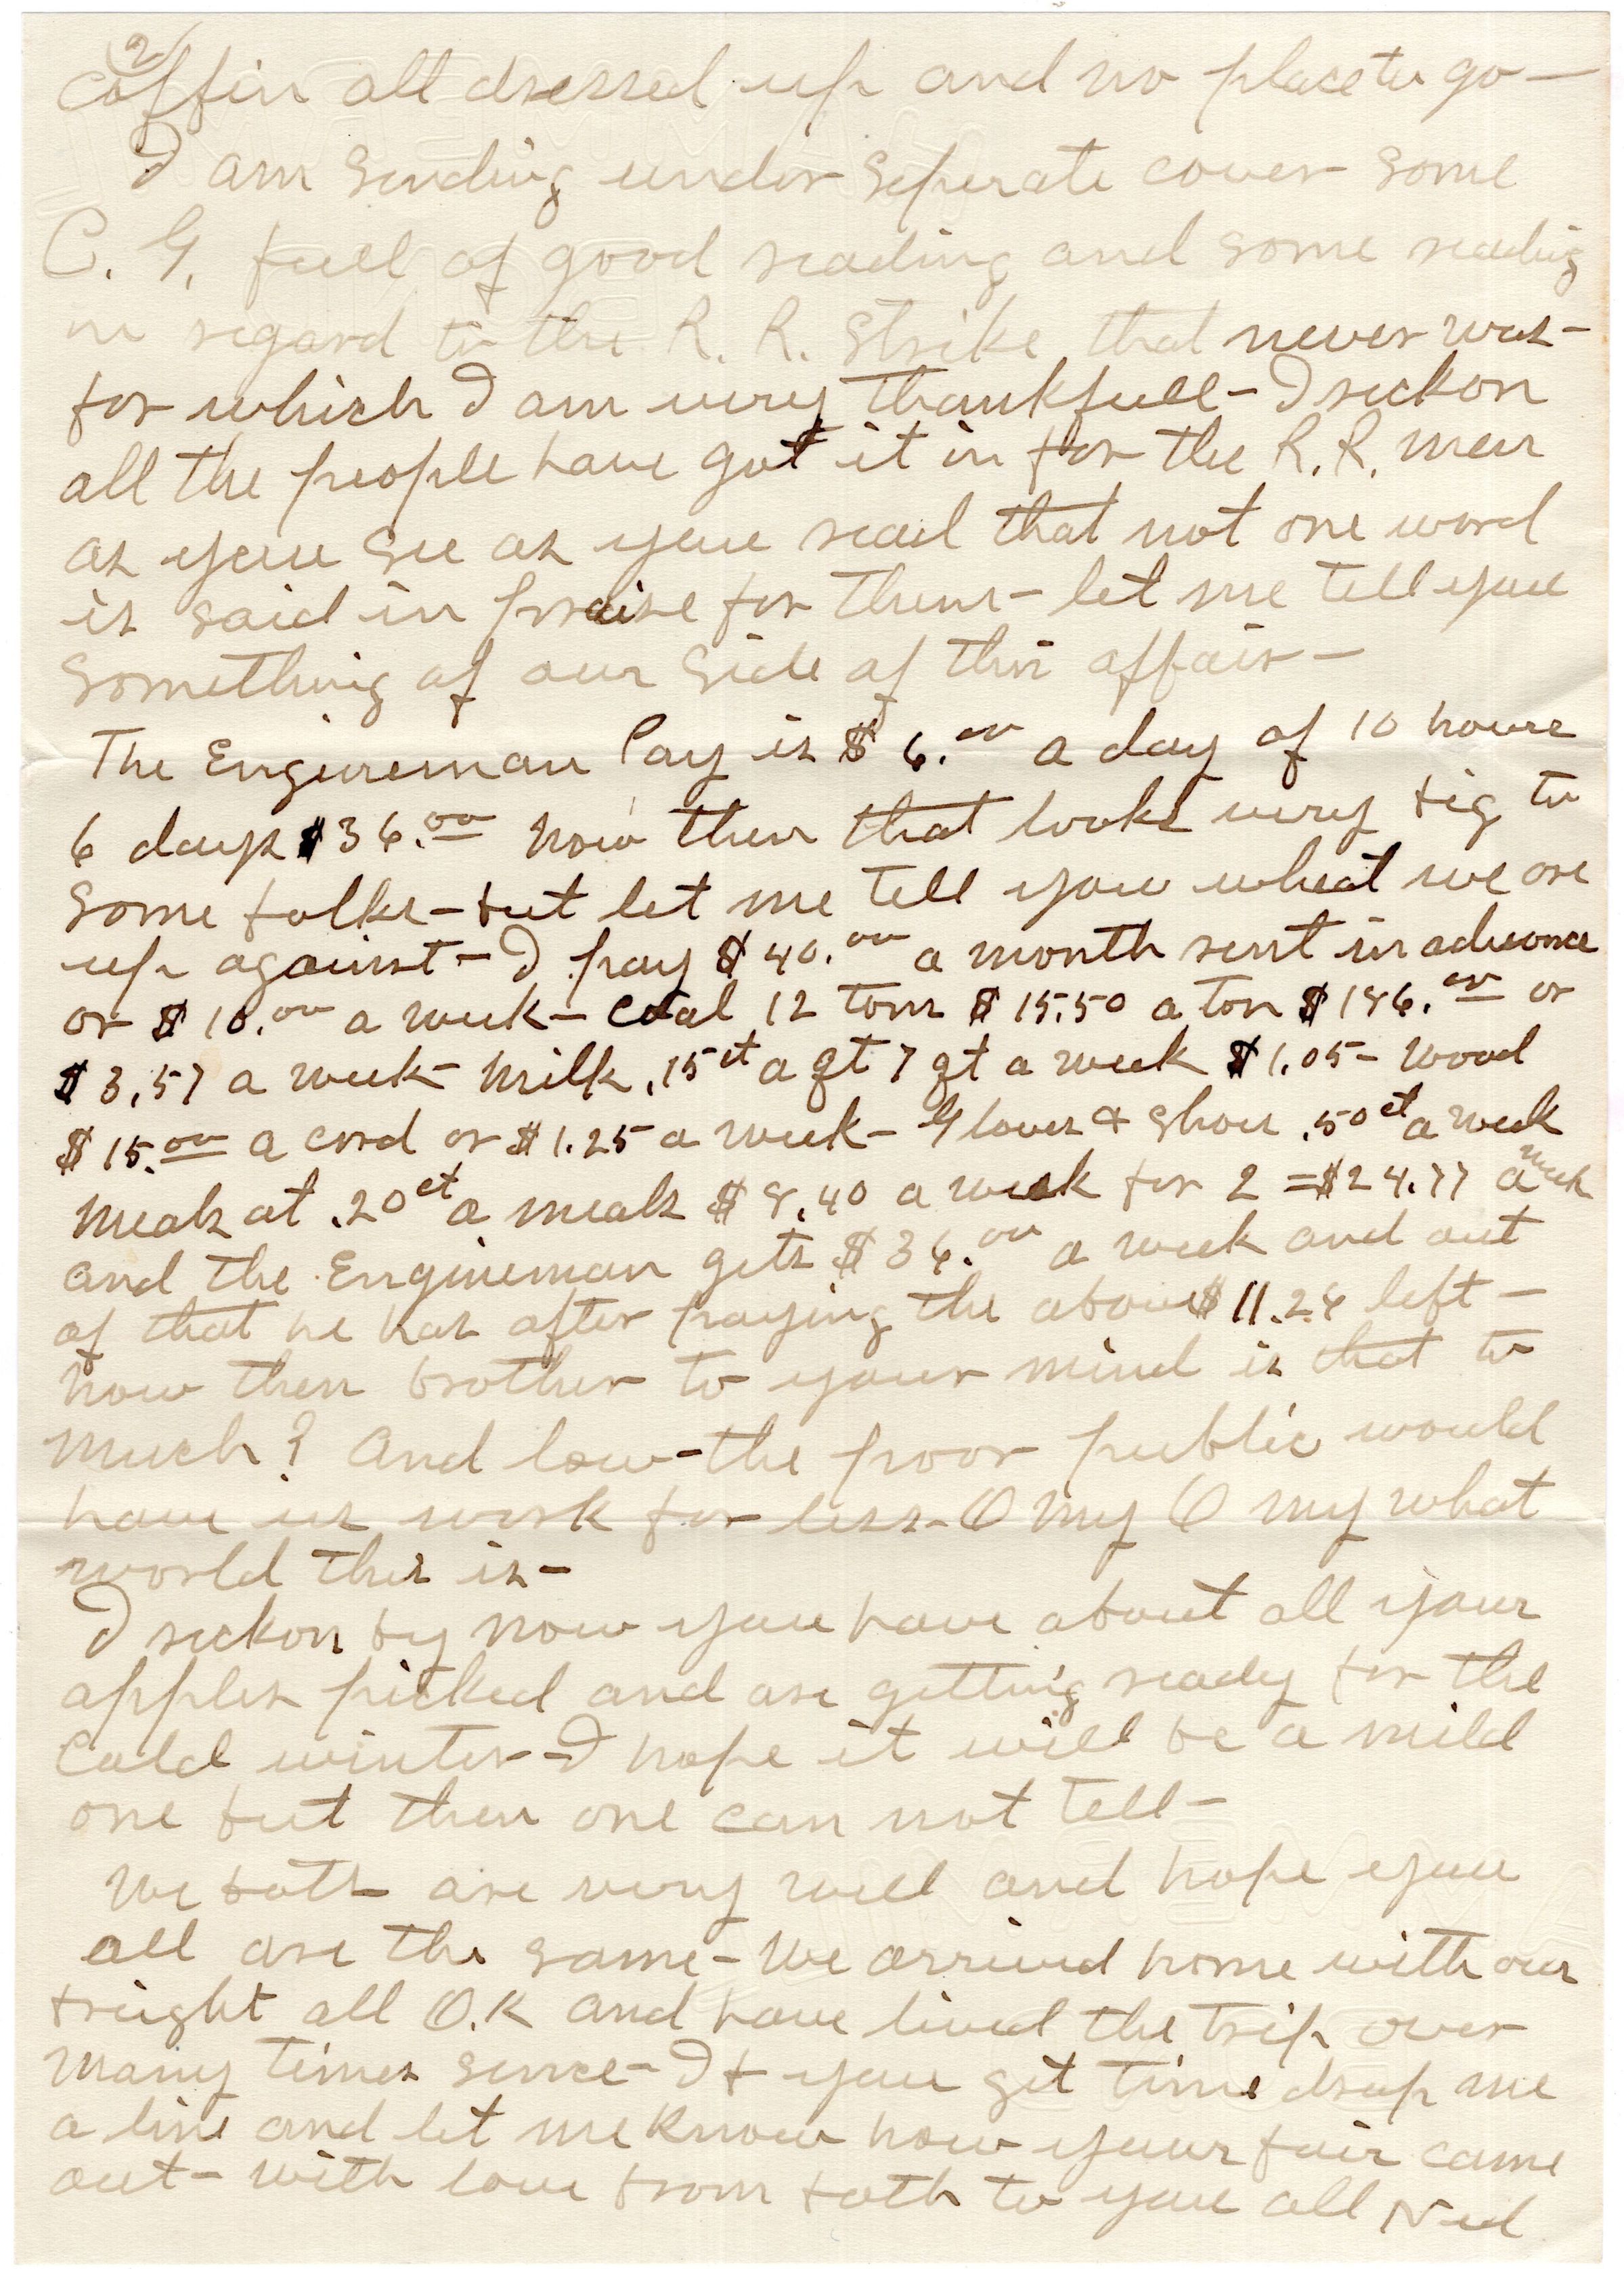 (2)
coffin all dressed up and no place to go—
I am sending under seperate cover some
C. G. full of good reading and some reading
in regard to the R. R. Strike that never was—
for which I am very thankfull— I reckon
all the people have got it in for the R. R. men
as you see as you read that not one word
is said in praise for them— let me tell you
something of our side of this affair—
The Engineman Pay is $6.00 a day of 10 hours
6 days $36.00 now then that looks very big to
some folks— but let me tell you what we are
up against— I pay $40.00 a month rent in advance
or $10.00 a week— Coal 12 tons $15.50 a ton $186.00 or
$3.57 a week— Milk .15ct a qt 7 qt a week $1.05— Wood
$15.00 a cord or $1.25 a week— Gloves & Shoes .50ct a week
Meals at .20ct a meals $8.40 a week for 2 = $24.77 a week
and the Engineman gets $36.00 a week and out
of that he has after paying the above $11.24 left—
now then brother to your mind is that to
much? And low— the poor public would
have us work for less— O my O my what
world this is—
I reckon by now you have about all your
apples picked and are getting ready for the
Cold winter— I hope it will be a mild
one but then one can not tell—
We both are very well and hope you
all are the same— We arrived home with our
freight all O.K and have lived the trip over
Many times since— If you get time drop me
a line and let me know how your fair came
out— with love from both to you all Ned